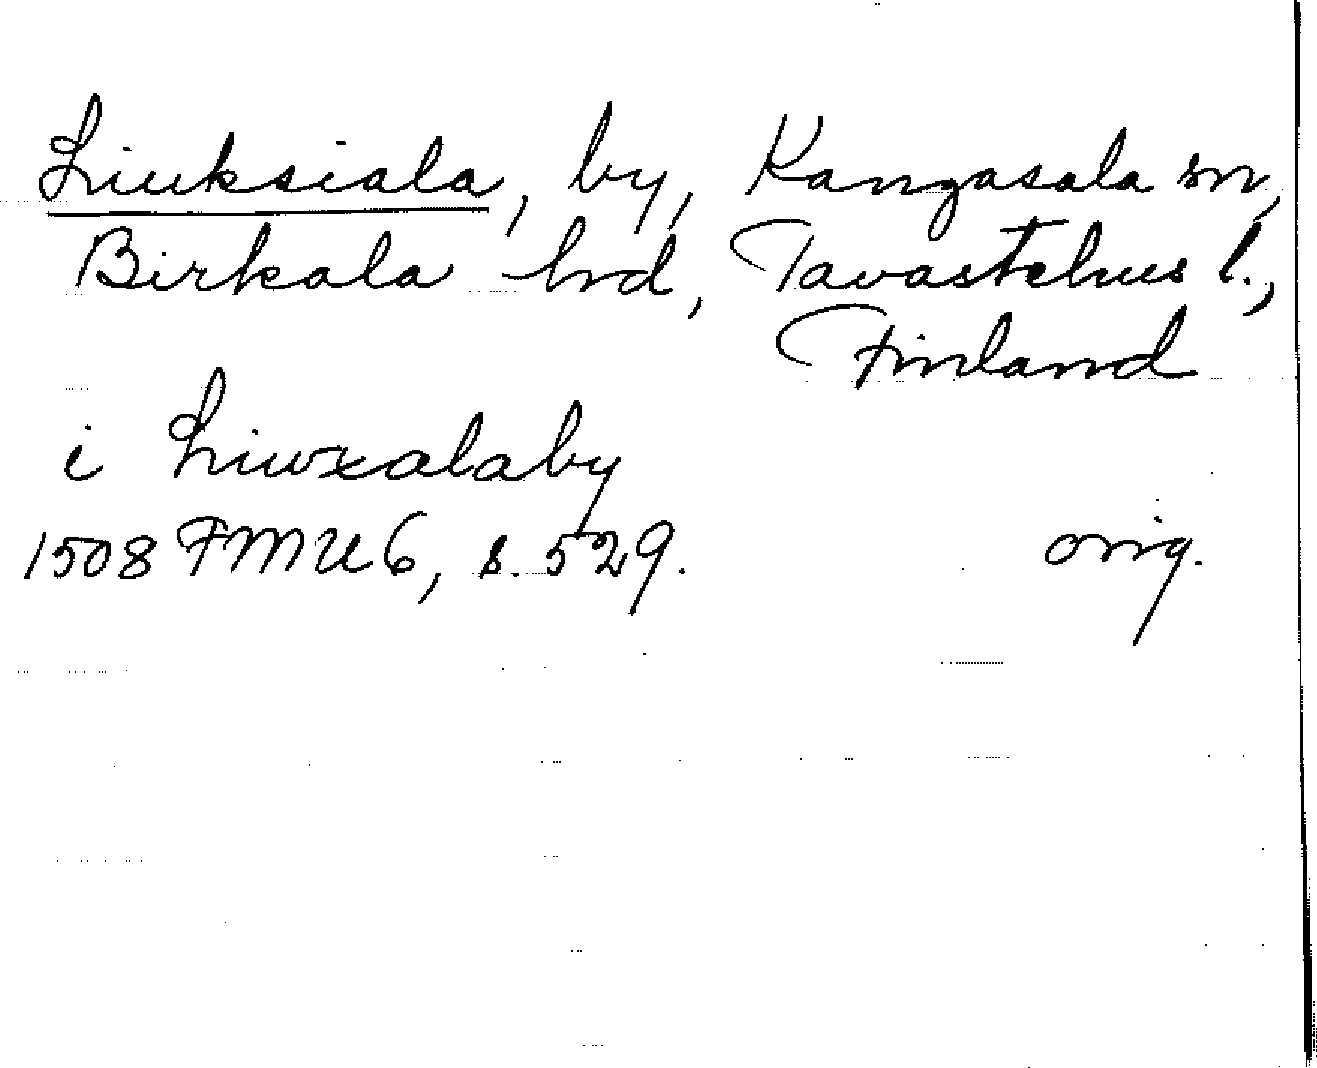 Liuksiala, by, Kangasala sn,
Birkala hd, Tavastehus l.,
Finland
i Liwxalaby
1508 FMU 6, s. 529. orig.